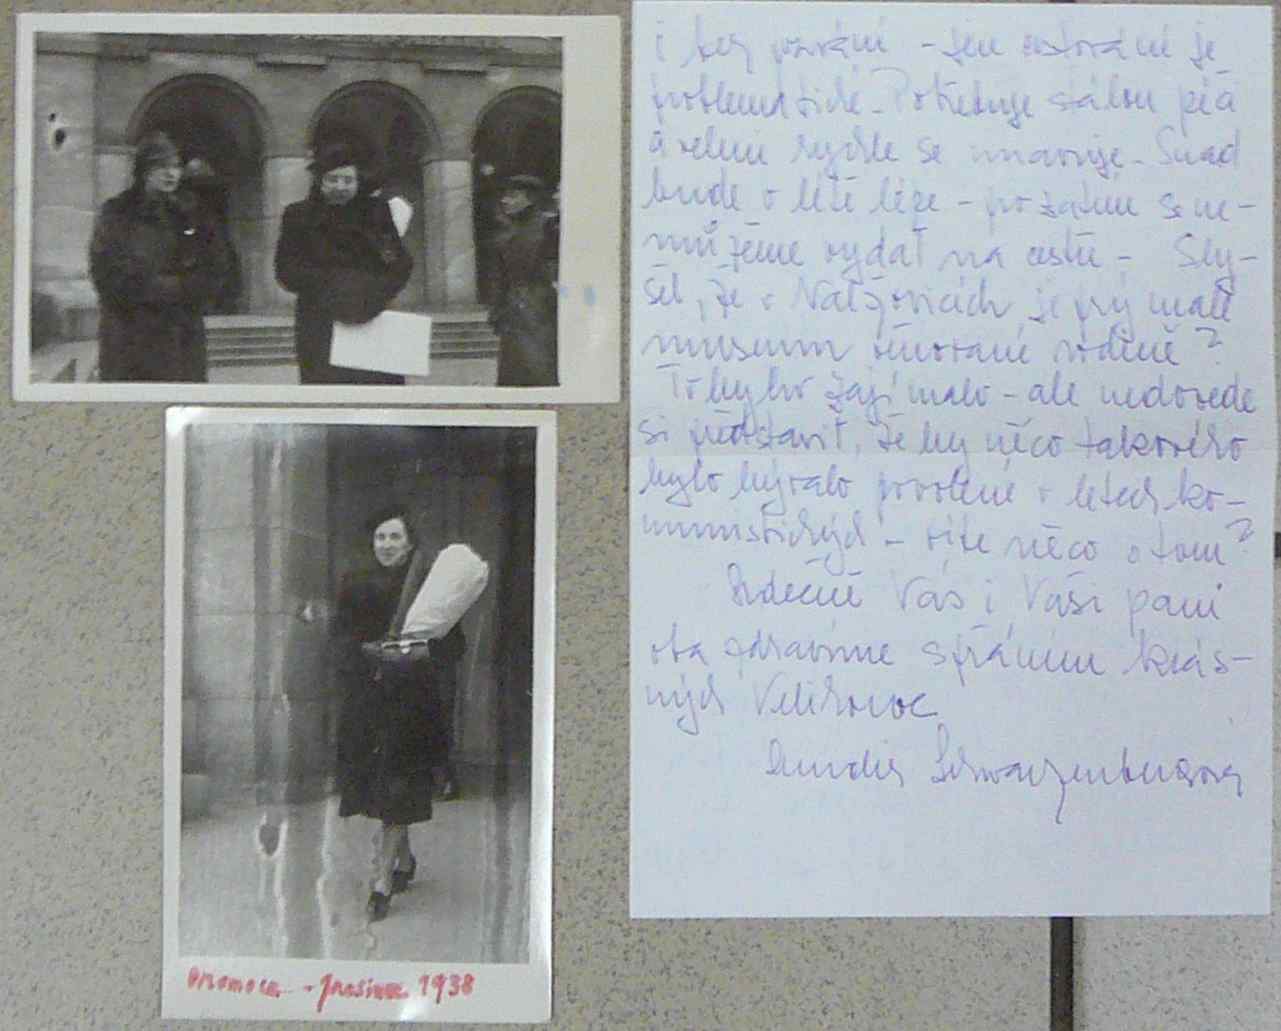 i bez pozvání – jen cestování je
problematické. Potřebuje stálou péči
a velmi rychle se unavuje. Snad
bude v létě lépe – po zatím se ne-
můžeme vydat na cestu – Sly-
šel, že v Nalžovicích je prý malé
museum věnované rodině?
To by ho zajímalo – ale nedovede
si představit, že by něco takového
bylo bývalo povolené v letech ko-
munistických – víte něco o tom?
Srdečně Vás i Vaši paní
oba zdravíme s přáním krás-
ných Velikonoc
Schwarzenbergová
Promoce - prosinec 1938